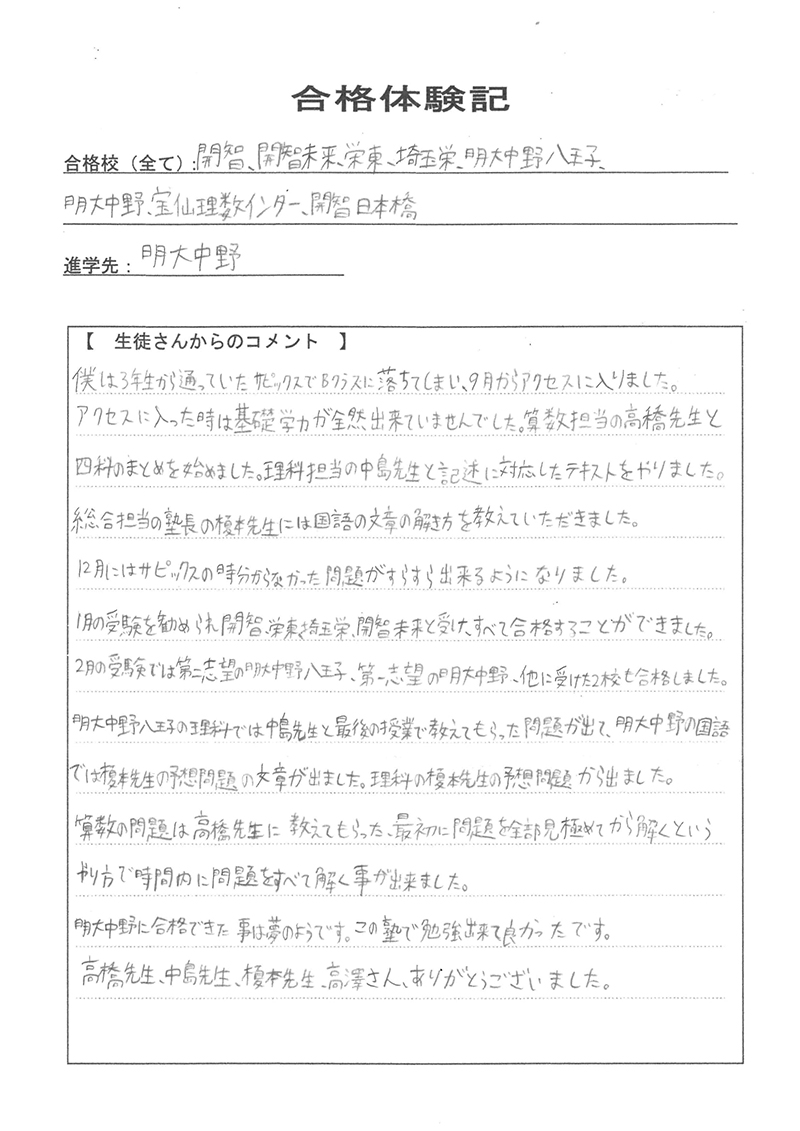 合格体験記
合格校（全て）:開智、開智未来、栄東、埼玉栄、明大中野八王子、
明大中野、宝仙理数インター、開智日本橋
進学先：明大中野
【　生徒さんからのコメント　】
僕は3年生から通っていたサピックスでBクラスに落ちてしまい、9月からアクセスに入りました。
アクセスに入った時は基礎学力が全然出来ていませんでした。算数担当の高橋先生と
四科のまとめを始めました。理科担当の中島先生と記述に対応したテキストをやりました。
総合担当の塾長の榎本先生には国語の文章の解き方を教えていただきました。
12月にはサピックスの時分からなかった問題がすらすら出来るようになりました。
1月の受験を勧められ開智、栄東、埼玉栄、開智未来と受け、すべて合格することができました。
2月の受験では第二志望の明大中野八王子、第一志望の明大中野、他に受けた2校も合格しました。
明大中野八王子の理科では中島先生と最後の授業で教えてもらった問題が出て、明大中野の国語
では榎本先生の予想問題の文章が出ました。理科の榎本先生の予想問題から出ました。
算数の問題は高橋先生に教えてもらった、最初に問題を全部見極めてから解くという
やり方で時間内に問題をすべて解く事が出来ました。
明大中野に合格できた事は夢のようです。この塾で勉強出来て良かったです。
高橋先生、中島先生、榎本先生、高澤さん、ありがとうございました。